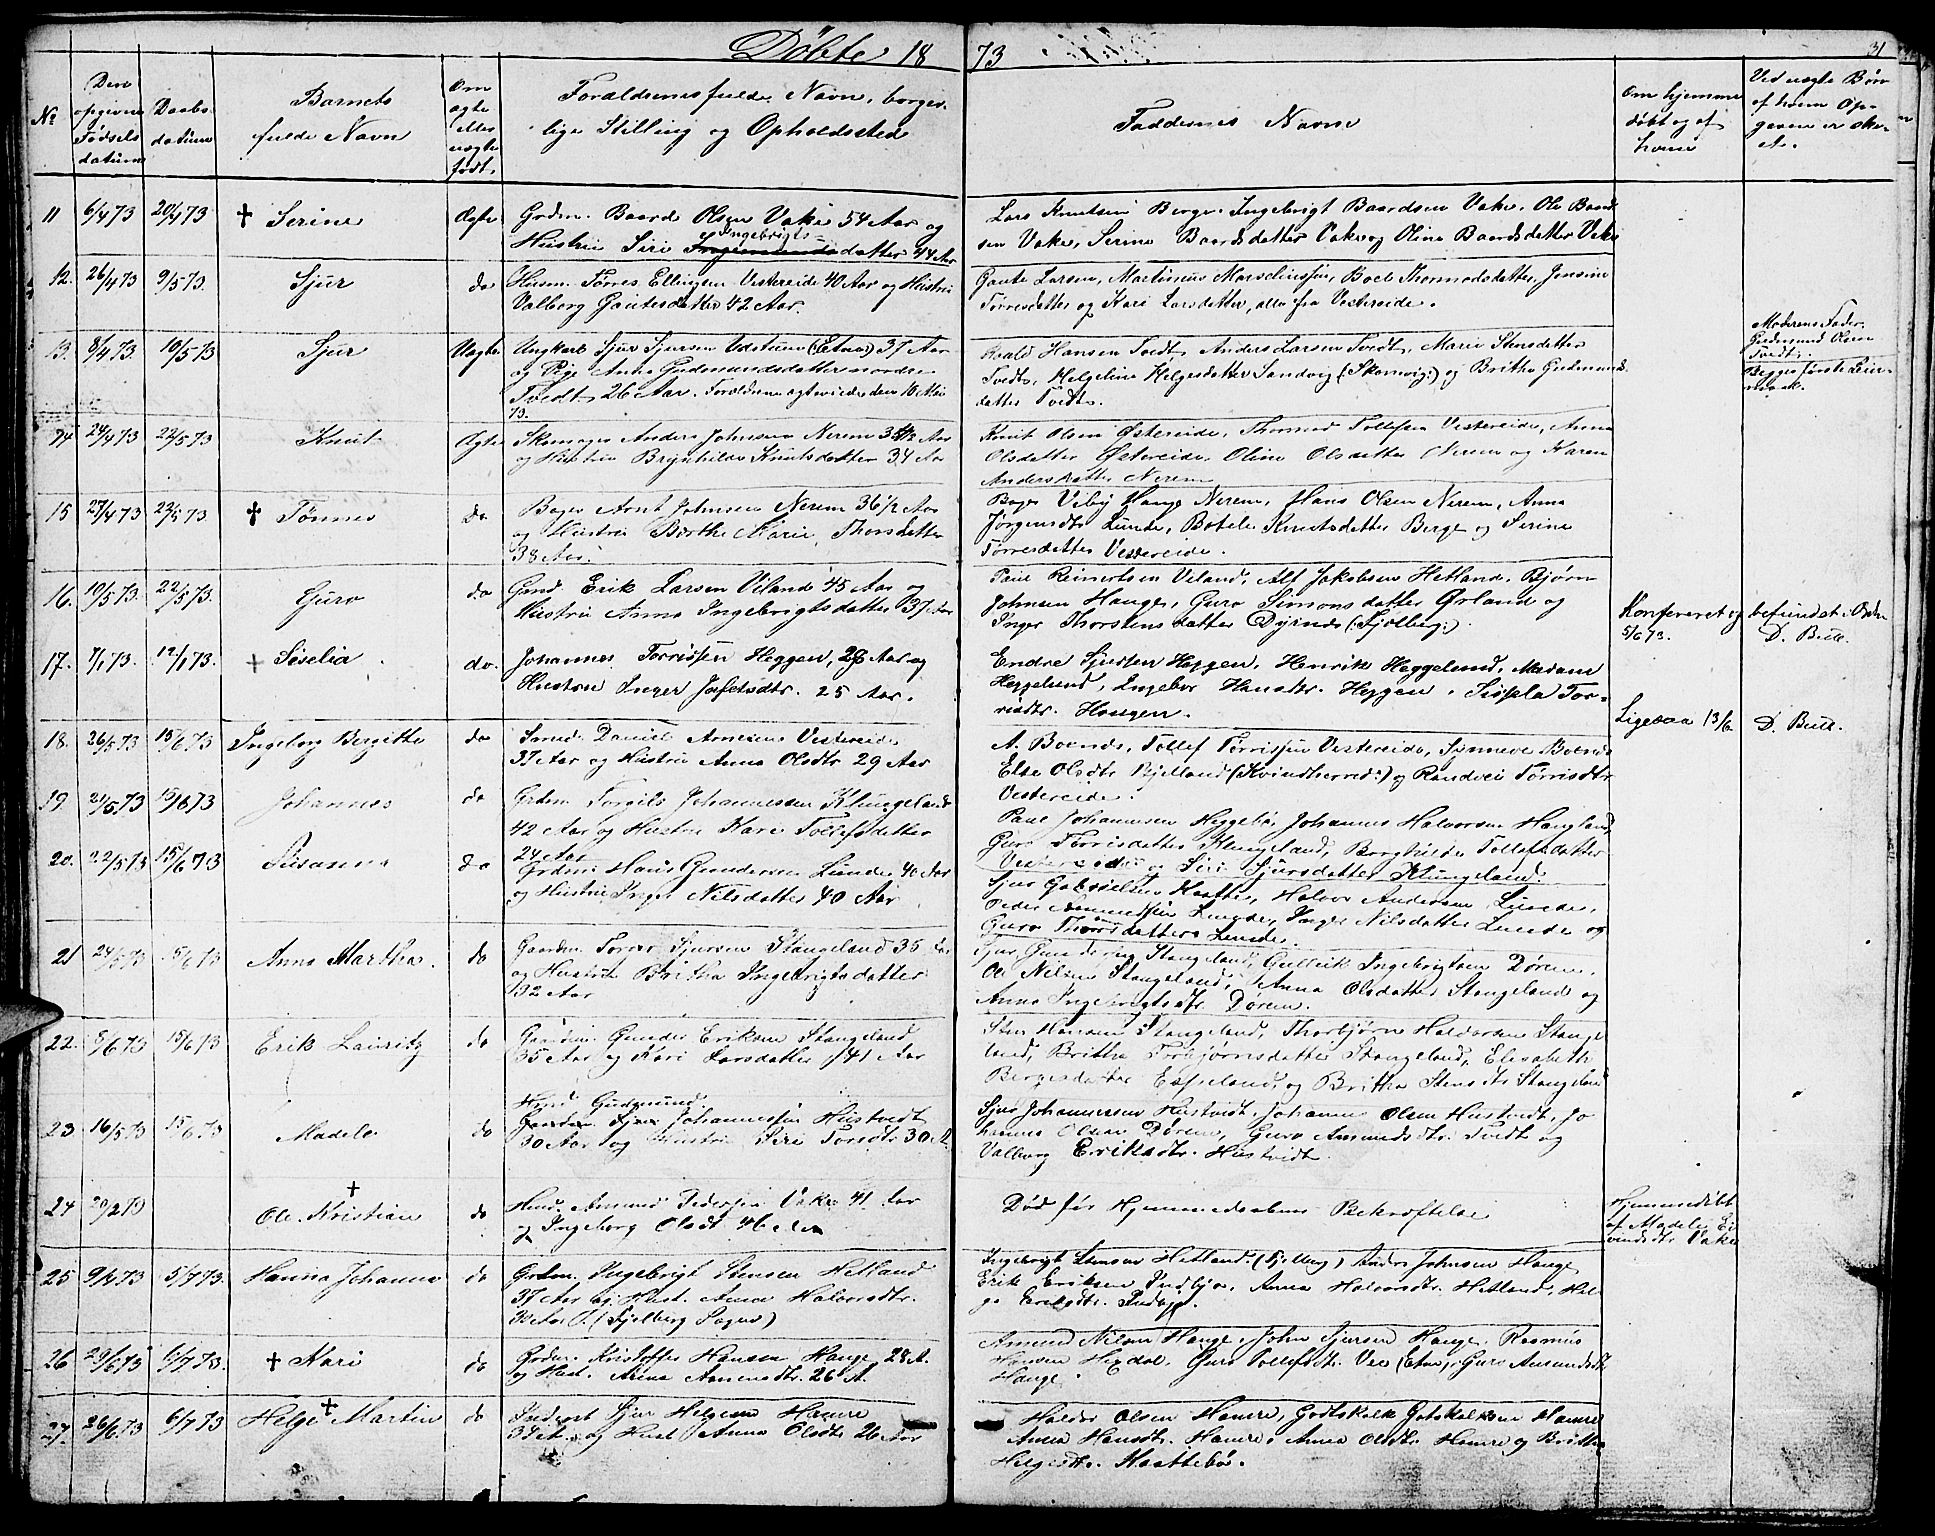 Döbte 18 73
31
No
Den opgivne Fødsels datum
Daabs datum
Barnets fulde Navn
Om ægte eller uægte født.
Forældrenes fulde Navn, borgerlige Stilling og Opholdssted
Faddernes Navne
Om hjemme døbt og af hvem
Ved uægte Børn af hvem Opgaven er skeet.
11 6/4 73 20/4 73 † Serine Ægte Grdm. Baard Olsen Vake 54 Aar og
Hustru Siri Ingebrigtsdatter 44 Aar
Lars Knutsen Berge, Ingebrigt Baardsen Vake, Ole Baard
sen Vake, Serine Baardsdatter Vake og Oline Baardsdatter Vake
12. 26/4 73 9/5 73. Sjur do Husm. Tørres Ellingsen Vestereide 40 Aar og Hustru
Valborg Gautesdatter 42 Aar.
Gaute Larsen, Martinus Marselinssen, Boel Thormodsdatter, Jensine
Tørresdatter og Kari Larsdatter, alle fra Vestereide.
13. 8/4 73. 10/5 73 Sjur Uægte Ungkarl Sjur Sjursen Udstuen (Etne) 37 Aar
og Pige Anna Gudmundsdatter nordre
Tvedt 26 Aar. Forældrene ægteviede den 10 Mai
73.
Roald Hansen Tvedt, Anders Larsen Tvedt, Marie Stensdatter
Tvedt, Helgeline Helgesdatter Sandvig (Skonevig) og Britha Gudmunds
datter Tvedt.
Moderens Fader
Gudmund Olsen
Tvedt.
Begges første Leier
maal.
14 24/4 73 22/5 73 Knut Ægte Skomager Anders Johnsen Nerem 34 1/2 Aar
og Hustru Brynhilde Knutsdatter 34 Aar
Knut Olsen Østereide, Thormod Tollefsen Vestereide, Anna
Olsdatter Østereide, Oline Olsdatter Nerem og Karen
Andersdatter Nerem
15 27/4 73 22/5 73 † Tønnes do Bager Arnt Johnsen Nerem 36 1/2 Aar
og Hustru Berthe Marie Thorsdatter
38 Aar.
Bager Viby Hauge Nerem, Hans Olsen Nerem, Anna
Jørgensdtr Lunde, Botele Knutsdatter Berge og Serine
Tørresdatter Vestereide.
16. 10/5 73. 22/5 73. Guro do Grmd. Erik Larsen Veland 45 Aar og
Hustru Anna Ingebrigtsdatter 37 Aar
Paul Reinertsen Veland, Alf Jakobsen Hetland, Bjørn
Johnsen Hauge, Guro Simonsdatter Ørland og
Inger Thorstensdatter Dyrnes (:Fjelberg:).
Konfereret og befundet i Orden
5/6 73. D. Bull.
17. 7/1 73. 12/1 73. † Siselia do. Johannes Torrissen Heggen, 28 Aar og
Hustru Inger Josefsdtr. 25 Aar.
Endre Sjursen Heggen, Henrik Heggelund, Madam
Heggelund, Ingebor Hansdtr. Heggen, Sissela Tor-
risdtr. Haugen.
Ligesaa 13/6. D. Bull.
18. 26/5 73 15/6 73 Ingeborg Bergitha do Smed Daniel Arnesen Vestereide
37 Aar og Hustru Anna Olsdtr 29 Aar
A. Boends, Tollef Tørrissen Vestereide, Synneve Boends
Else Olsdtr Bjelland (Kvindherred:) og Randvei Tørrisdtr
Vestereide.
19 21/5 73 15/6 73 Johannes do Grdm. Torgils Johannessen Klungeland
42 Aar og Hustru Kari Tollefsdatter
24 Aar
Paul Johannessen Heggebø, Johannes Halvorsen Haugland
Guro Torrisdatter Klungeland, Borghilde Tollefsdatter
Vestereide og Siri Sjursdatter Klungeland.
20. 22/5 73 15/6 73 Susanna do Grdm. Hans Gundersen Lunde 40 Aar
og Hustru Inger Nilsdatter 40 Aar
Sjur Gabrielsen Haatte, Halvor Andersen Lunde,
Peder Lunde, Inger Nilsdatter Lunde og
Guro Thorsdatter Lunde.
21 24/5 73 15/6 73 Anna Martha. do Gaardm. Torres Sjursen Stangeland 35 Aar
og Hustru Britha Ingebrigtsdatter
32 Aar
Sjur Stangeland, Gullik Ingebrigtsen Døren,
Ole Nilsen Stangeland, Anna Olsdatter Stangeland og
Anna Ingebrigtsdtr. Døren.
22. 8/6 73 15/6 73 Erik Lauritz do Gaardm. Gunder Eriksen Stangeland
35 Aar og Kari Larsdatter 41 Aar
Sten Hansen Stangeland, Thorbjørn Haldorsen Stange
land, Britha Torbjørnsdatter Stangeland, Elisabeth
Bergesdatter Espeland, og Britha Stensdtr Stangeland
23 16/5 73 15/6 73 Madele do Hmd Gudmund
Johannessen Hustvedt
30 Aar og Hustru Siri Torsdtr 30 A.
Sjur Johannessen Hustvedt, Johannes Olsen Hustvedt, Jo
hannes Olsen Døren, Guro Amundsdtr. Tvedt og
Valborg Eriksdtr. Hustvedt.
24 20/2 73 † Ole Kristian do Hmd. Amund Pedersen Vake 41 Aar
og Ingeborg Olsdt 46 Aar
Død før Hjemmedaabens Bekræftelse
Hjemmedöbt
af Madele Ei
vindsdtr Vake
25 9/6 73 5/7 73. Hanna Johanna do Grdm. Ingebrigt Stensen Hetland
37 Aar og Hust. Anna Halvorsdtr.
30 Aar. (Fjelberg Sogn)
Ingebrigt Stensen Hetland (Fjelberg) Anders Johnsen Hauge,
Erik Eriksen Indbjo, Anna Halvorsdtr. Hetland, Hel
ge Eriksdtr. Indbjo.
26 29/6 73 6/7 73. † Mari do Grdm. Kristoffer Hansen Hauge 28 A.
og Hust. Anna Amundsdtr. 26 A.
Amund Nilsen Hauge, John Sjursen Hauge, Rasmus
Hansen Hexdal, Guro Tollefsdtr. Vee (Etne), Guro Amundsdtr
Hauge.
27. 26/6 73 6/7 73 Helge † Martin do Sjur Helgesen Hamre
37 A. og Hust Anna Olsdtr 26 Aar
Haldor Olsen Hamre, Godtskalk Gotskalksen Hamre
Anna Hansdtr. Hamre, Anna Olsdtr. Hamre og Britha
Helgesdtr. Haattebø.